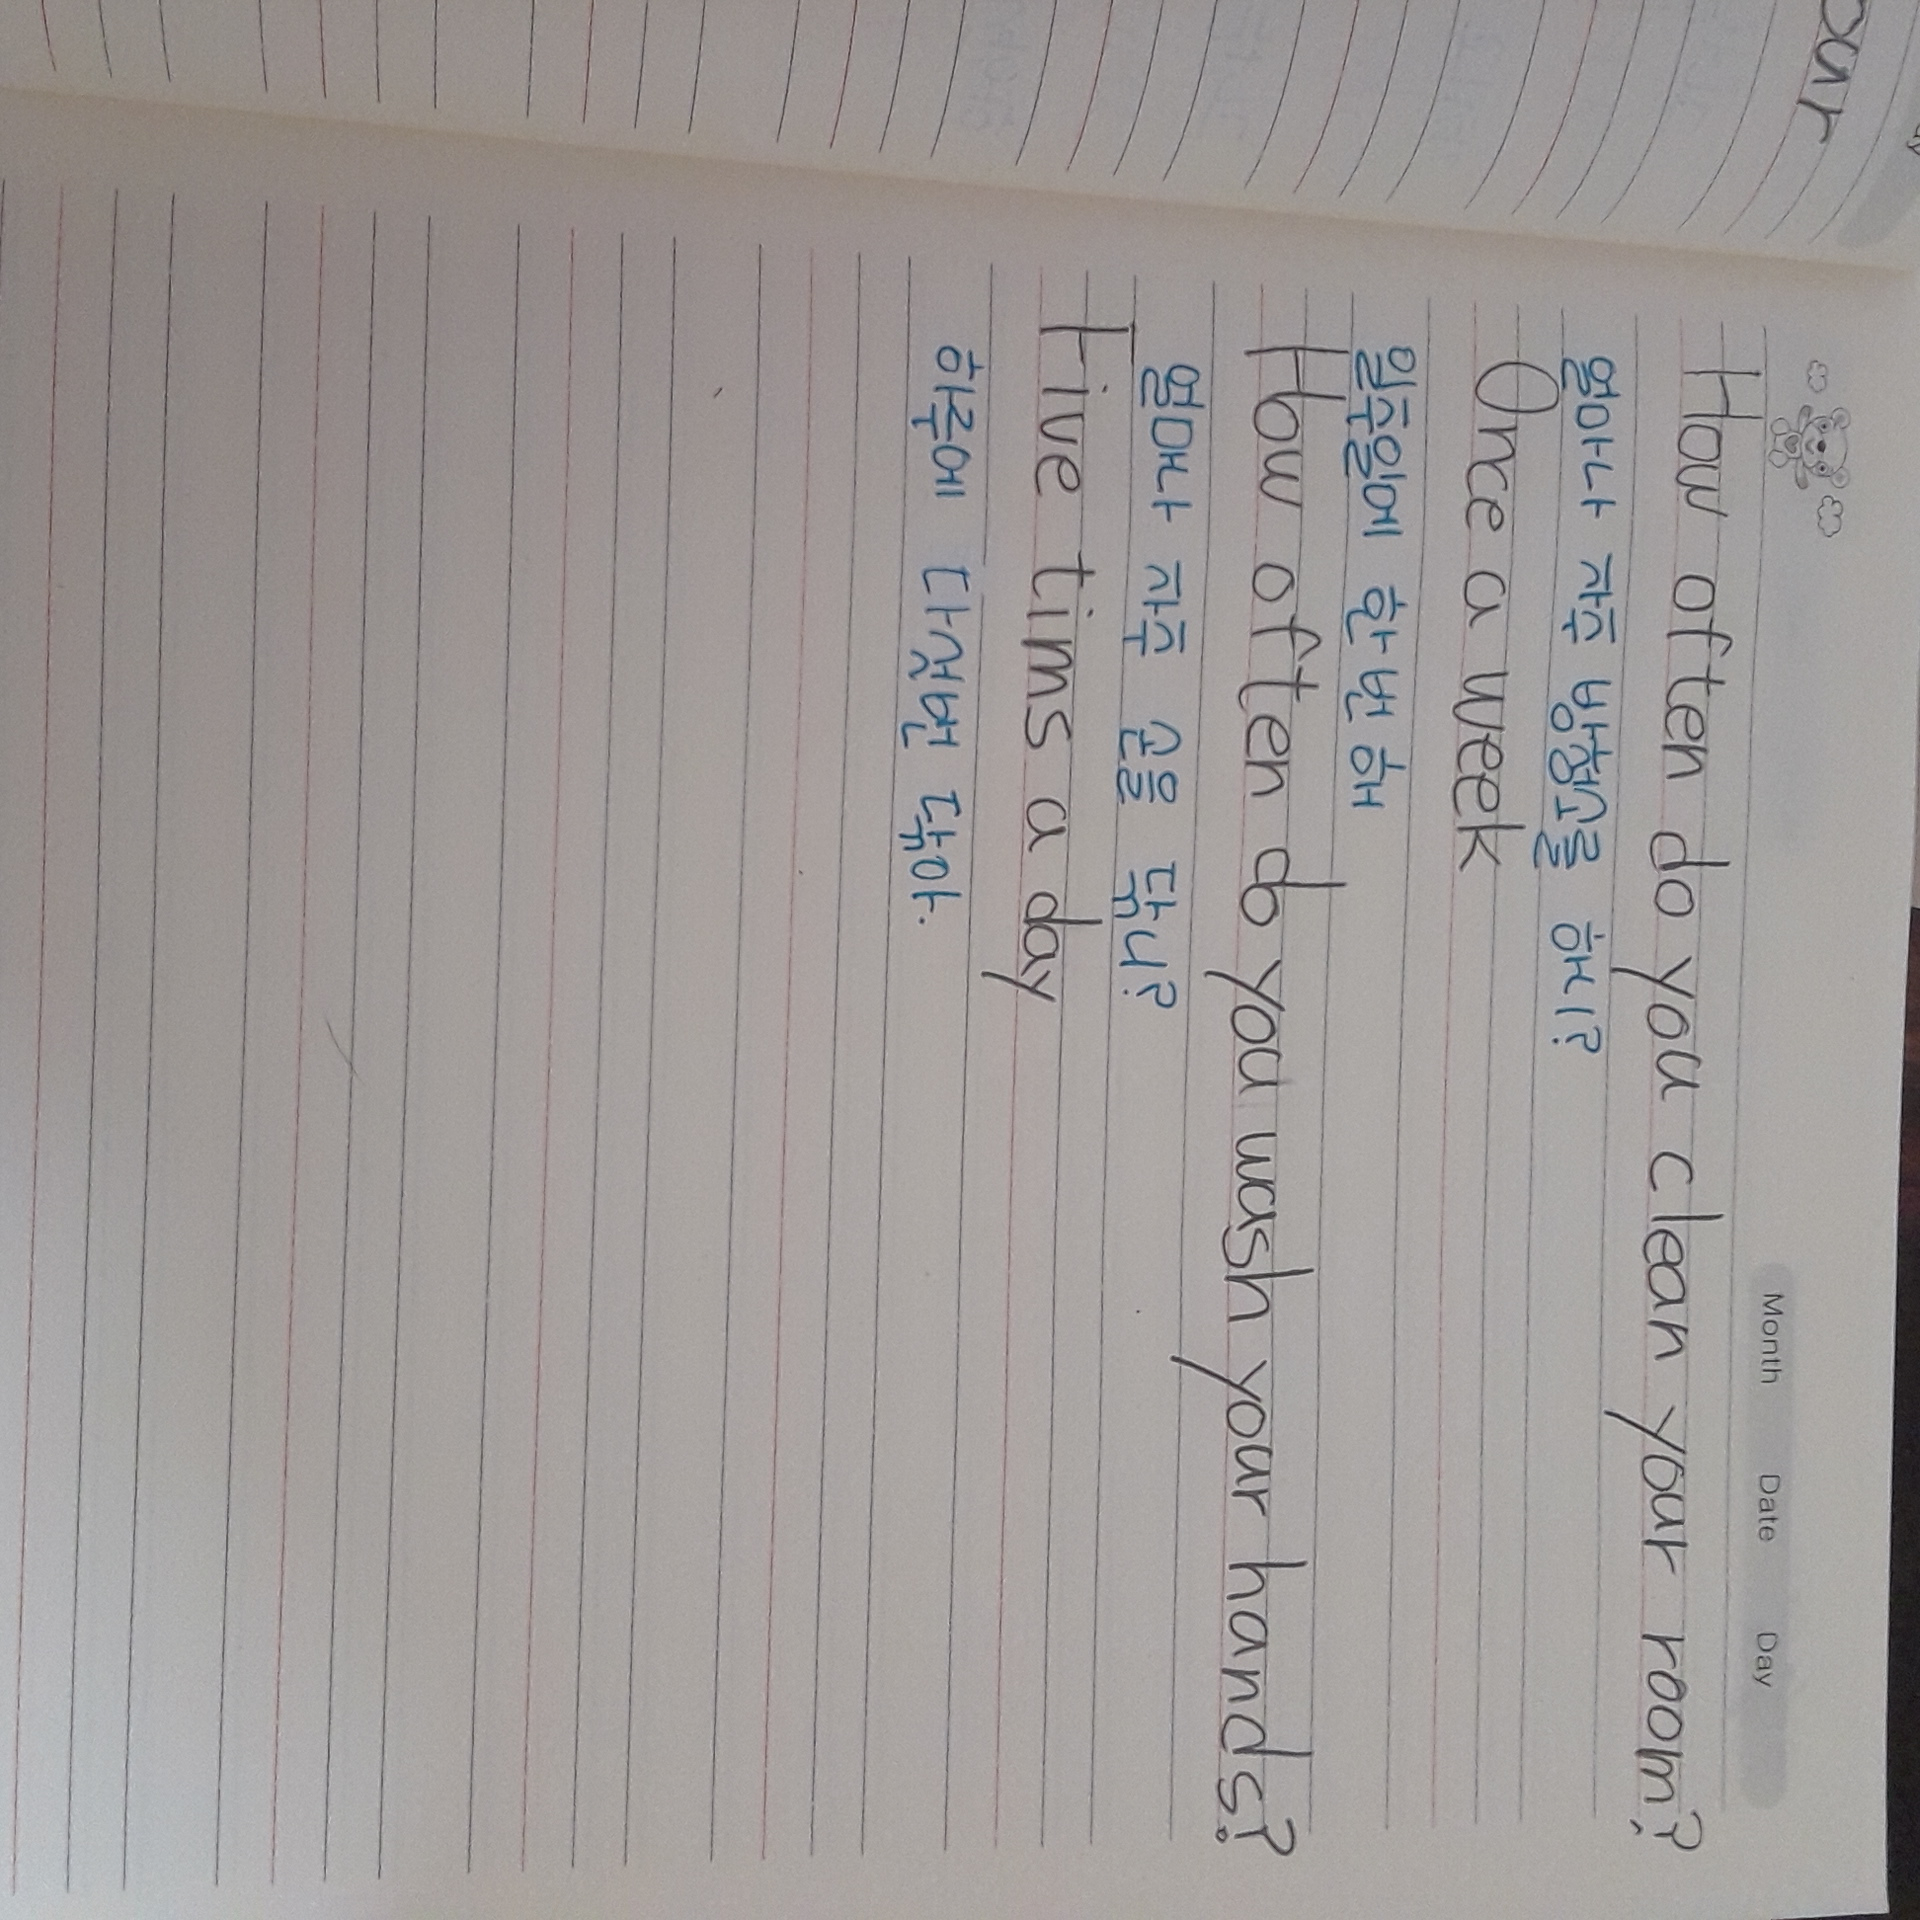 our
Month Date Day
How often do you clean your room?
얼마나 자주 방청소를 하니?
Once a week
일주일에 한번 해
How often do you wash your hands?
얼마나 자주 손을 닦니?
Five tims a day
하루에 다섯번 닦아.